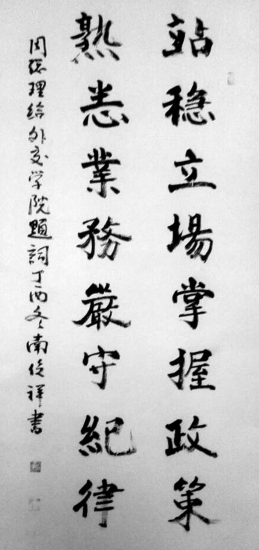 站穩立場掌握政策
熟悉業務嚴守紀律
周總理給外交学院題詞丁酉冬南俊祥書